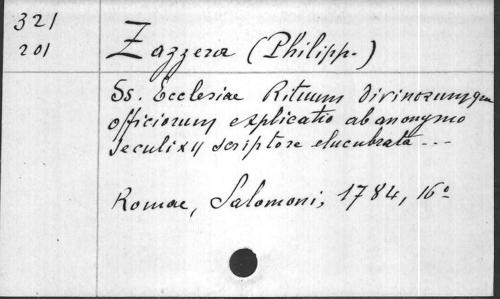 321
201
Zazzera (Philipp.)
Ss. Ecclesiae Rituum divinorumque
officiorum explicatio ab anonymo
seculi xij scriptore elucubrata ...
Romae, Salomoni, 1784, 16°